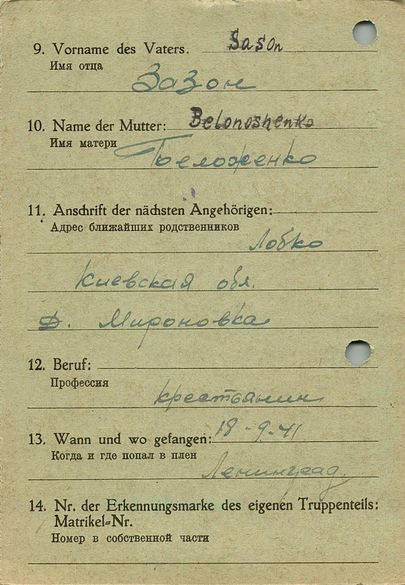 9. Vorname des Vaters. Sason
Имя отца
Зазон
10. Name der Mutter: Belonoshenko
Имя матери
Беложенко
11. Anschrift der nächsten Angehörigen:
Адрес ближайших родственников
Лобко
Киевская обл.
д. Мироновка
12. Beruf:
Профессия
крестьянин
13. Wann und wo gefangen: 18-9-41
Когда и где попал в плен
Ленинград
14. Nr. der Erkennungsmarke des eigenen Truppenteils:
Matrikel-Nr.
Номер в собственной части